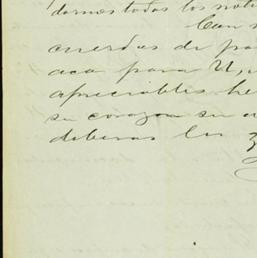 darnes todas las noti
Can
cuerdas de pa
aca para U,
apreciables he
su corazon su
deberas les